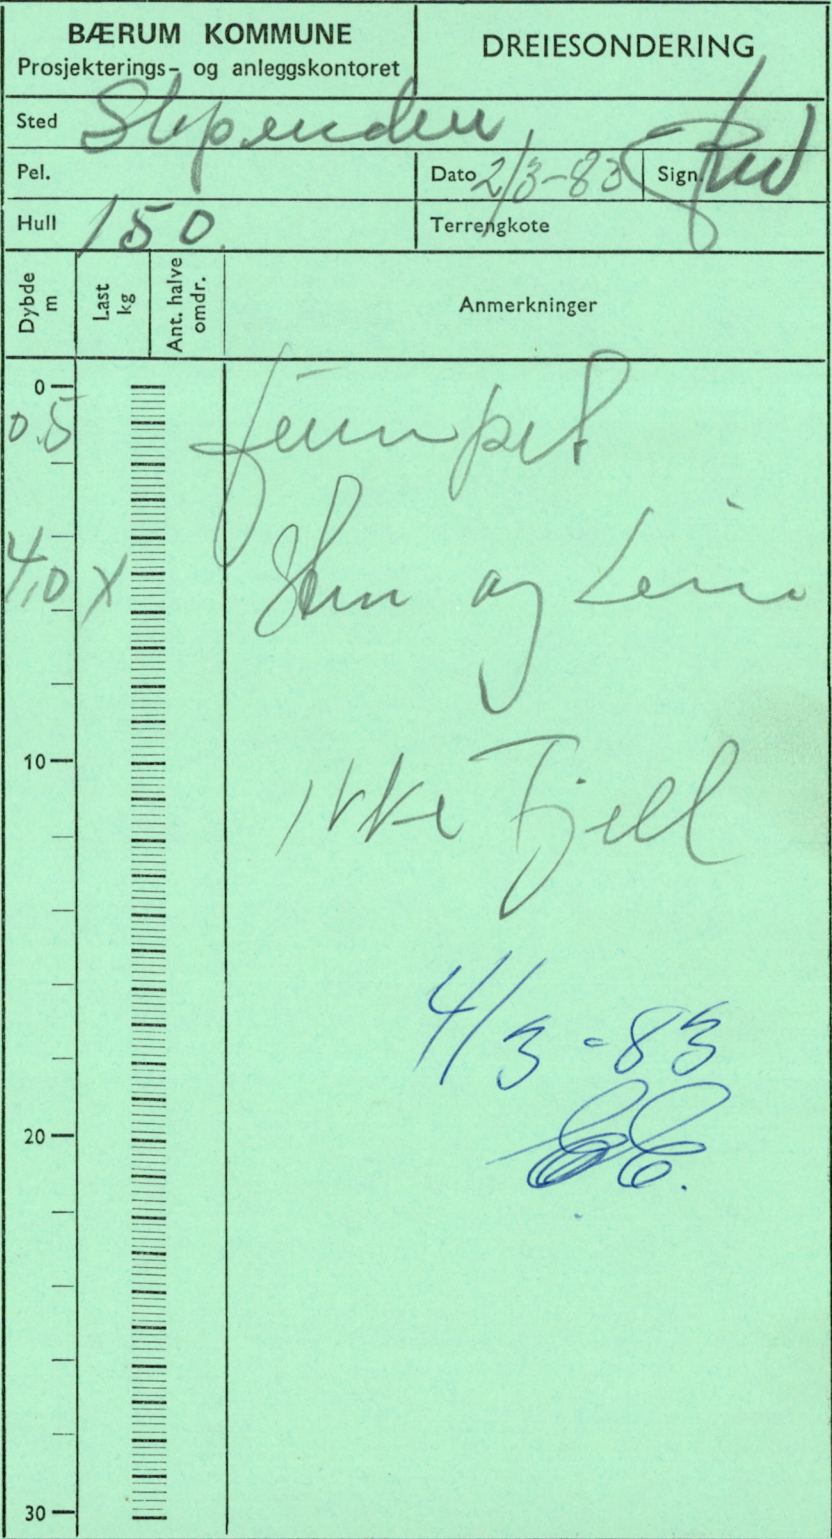 BÆRUM KOMMUNE
Prosjekterings- og anleggskontoret
DREIESONDERING
Sted Slependen
Pel.
Dato 2/3-83 Sign.
Hull 150.
Terrengkote
Dybde m
Last kg
Ant. halve omdr.
Anmerkninger
0
0.5
4,0 X
Sten og Leire
10
Ikke Fjell
4/3-83
20
30